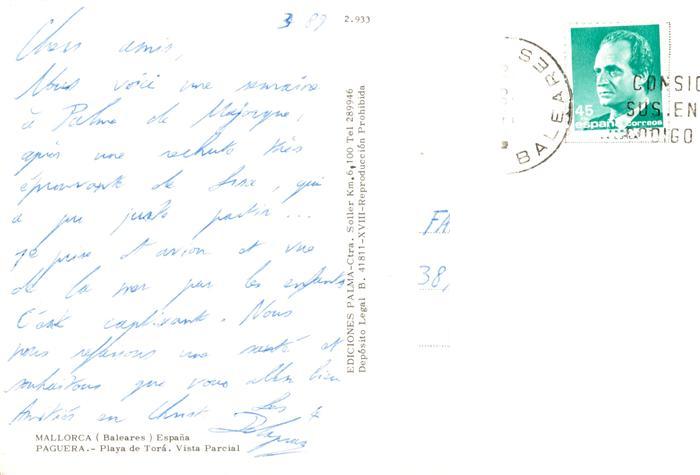 3 87
2.933
Chers amis,
Nous voici une semaine
à Palma de Majorque,
après une rechute très
éprouvante de qui
a pu juste partir...
1er avion et vue
de la mer par les enfants
C'est captivant. Nous
nous refaisons une santé et
souhaitons que vous allez bien
Amitiés en Christ Les
MALLORCA ( Baleares ) España
PAGUERA.- Playa de Torá. Vista Parcial
EDICIONES PALMA-Ctra. Soller Km.6,100 Tel 289946
Depósito Legal B. 41811-XVIII-Reproducción Prohibida
BALEARES
45
españa correos
CONSIG
SUS.EN
CODIGO
FA
38,